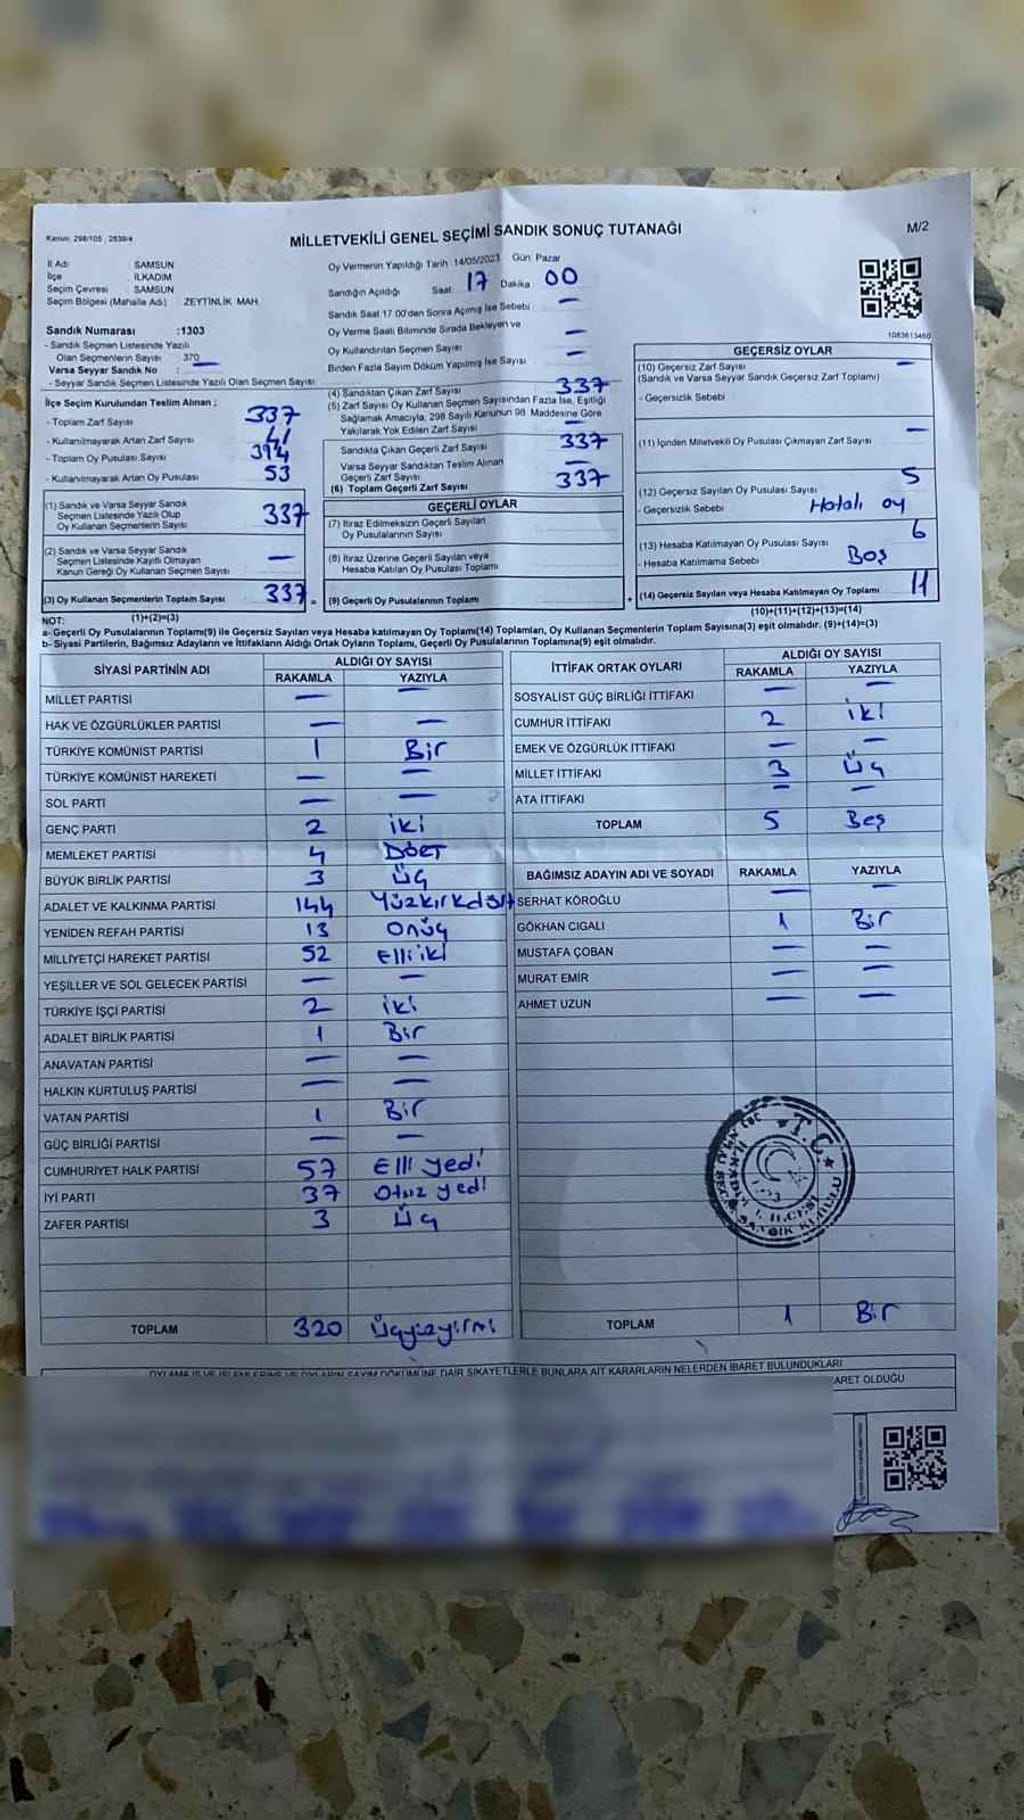 Kanun: 298/105 , 2839/4
MİLLETVEKİLİ GENEL SEÇİMİ SANDIK SONUÇ TUTANAĞI
M/2
İl Adı SAMSUN
İlçe İLKADIM
Seçim Çevresi SAMSUN
Seçim Bölgesi (Mahalle Adı) ZEYTİNLİK MAH.
Sandık Numarası :1303
- Sandık Seçmen Listesinde Yazılı
Olan Seçmenlerin Sayısı 370
Varsa Seyyar Sandık No : —
- Seyyar Sandık Seçmen Listesinde Yazılı Olan Seçmen Sayısı
Oy Vermenin Yapıldığı Tarih 14/05/2023 Gün Pazar
Sandığın Açıldığı Saat 17 Dakika 00
Sandık Saat 17.00'den Sonra Açılmış İse Sebebi —
Oy Verme Saati Bitiminde Sırada Bekleyen ve
Oy Kullandırılan Seçmen Sayısı —
Birden Fazla Sayım Döküm Yapılmış İse Sayısı —
1083613460
İlçe Seçim Kurulundan Teslim Alınan ;
- Toplam Zarf Sayısı 337
- Kullanılmayarak Artan Zarf Sayısı
- Toplam Oy Pusulası Sayısı
- Kullanılmayarak Artan Oy Pusulası 53
(1) Sandık ve Varsa Seyyar Sandık
Seçmen Listesinde Yazılı Olup
Oy Kullanan Seçmenlerin Sayısı 337
(2) Sandık ve Varsa Seyyar Sandık
Seçmen Listesinde Kayıtlı Olmayan
Kanun Gereği Oy Kullanan Seçmen Sayısı —
(3) Oy Kullanan Seçmenlerin Toplam Sayısı 337
(1)+(2)=(3)
(4) Sandıktan Çıkan Zarf Sayısı 337
(5) Zarf Sayısı Oy Kullanan Seçmen Sayısından Fazla İse, Eşitliği
Sağlamak Amacıyla, 298 Sayılı Kanunun 98. Maddesine Göre
Yakılarak Yok Edilen Zarf Sayısı —
Sandıkta Çıkan Geçerli Zarf Sayısı 337
Varsa Seyyar Sandıktan Teslim Alınan
Geçerli Zarf Sayısı —
(6) Toplam Geçerli Zarf Sayısı 337
GEÇERLİ OYLAR
(7) İtiraz Edilmeksizin Geçerli Sayılan
Oy Pusulalarının Sayısı
(8) İtiraz Üzerine Geçerli Sayılan veya
Hesaba Katılan Oy Pusulası Toplamı
= (9) Geçerli Oy Pusulalarının Toplamı +
GEÇERSİZ OYLAR
(10) Geçersiz Zarf Sayısı —
(Sandık ve Varsa Seyyar Sandık Geçersiz Zarf Toplamı)
- Geçersizlik Sebebi
(11) İçinden Milletvekili Oy Pusulası Çıkmayan Zarf Sayısı —
(12) Geçersiz Sayılan Oy Pusulası Sayısı 5
- Geçersizlik Sebebi Hatalı oy
(13) Hesaba Katılmayan Oy Pusulası Sayısı 6
- Hesaba Katılmama Sebebi Boş
(14) Geçersiz Sayılan veya Hesaba Katılmayan Oy Toplamı 11
(10)+(11)+(12)+(13)=(14)
NOT:
a- Geçerli Oy Pusulalarının Toplamı(9) ile Geçersiz Sayılan veya Hesaba katılmayan Oy Toplamı(14) Toplamları, Oy Kullanan Seçmenlerin Toplam Sayısına(3) eşit olmalıdır. (9)+(14)=(3)
b- Siyasi Partilerin, Bağımsız Adayların ve İttifakların Aldığı Oyların Toplamı, Geçerli Oy Pusulalarının Toplamına(9) eşit olmalıdır.
SİYASİ PARTİNİN ADI ALDIĞI OY SAYISI
RAKAMLA YAZIYLA
MİLLET PARTİSİ — —
HAK VE ÖZGÜRLÜKLER PARTİSİ — —
TÜRKİYE KOMÜNİST PARTİSİ 1 Bir
TÜRKİYE KOMÜNİST HAREKETİ — —
SOL PARTİ — —
GENÇ PARTİ 2 iki
MEMLEKET PARTİSİ 4 Dört
BÜYÜK BİRLİK PARTİSİ 3 Üç
ADALET VE KALKINMA PARTİSİ 144 Yüzkırkdört
YENİDEN REFAH PARTİSİ 13 Onüç
MİLLİYETÇİ HAREKET PARTİSİ 52 Elli iki
YEŞİLLER VE SOL GELECEK PARTİSİ — —
TÜRKİYE İŞÇİ PARTİSİ 2 iki
ADALET BİRLİK PARTİSİ 1 Bir
ANAVATAN PARTİSİ — —
HALKIN KURTULUŞ PARTİSİ — —
VATAN PARTİSİ 1 Bir
GÜÇ BİRLİĞİ PARTİSİ — —
CUMHURİYET HALK PARTİSİ 57 Elli yedi
İYİ PARTİ 37 Otuz yedi
ZAFER PARTİSİ 3 Üç
TOPLAM 320 Üçyüzyirmi
İTTİFAK ORTAK OYLARI ALDIĞI OY SAYISI
RAKAMLA YAZIYLA
SOSYALİST GÜÇ BİRLİĞİ İTTİFAKI — —
CUMHUR İTTİFAKI 2 iki
EMEK VE ÖZGÜRLÜK İTTİFAKI — —
MİLLET İTTİFAKI 3 Üç
ATA İTTİFAKI — —
TOPLAM 5 Beş
BAĞIMSIZ ADAYIN ADI VE SOYADI RAKAMLA YAZIYLA
SERHAT KÖROĞLU — —
GÖKHAN CIGALI 1 Bir
MUSTAFA ÇOBAN — —
MURAT EMİR — —
AHMET UZUN — —
T.C.
SANDIK KURULU
TOPLAM 1 Bir
DÖKÜMÜNE DAİR ŞİKAYETLERLE BUNLARA AİT KARARLARIN NELERDEN İBARET BULUNDUKLARI
ARET OLDUĞU